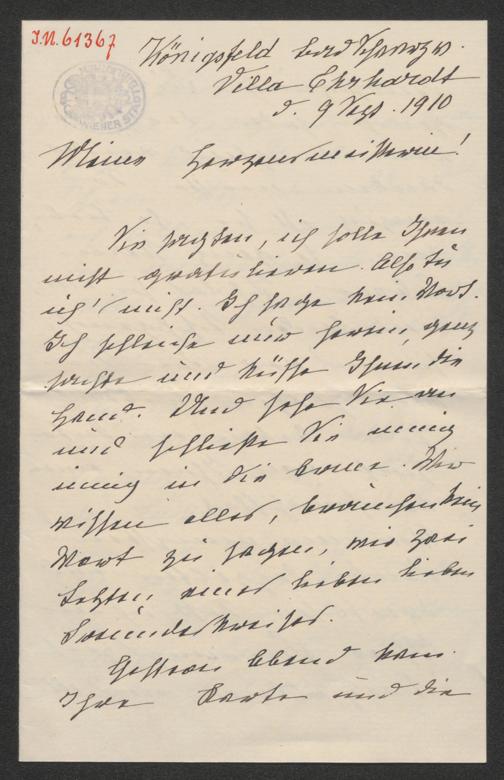 J.N. 61367
Königsfeld bad. Schwarzw.
Villa Ehrhardt
d. 9 Sept. 1910
Meine Herzensmeisterin!
Sie sagten, ich solle Ihnen
nicht gratulieren. Also tu
ich's nicht. Ich sage kein Wort.
Ich schleiche mich herein, ganz
sachte und küsse Ihnen die
Hand. Und sehe Sie an
und schließe Sie innig
innig in die Arme. Wir
wissen alles, brauchen kein
Wort zu sagen, wir zwei
Letzten eines lieben lieben
Freundeskreises.
Gestern Abend kam
Ihre Karte und die